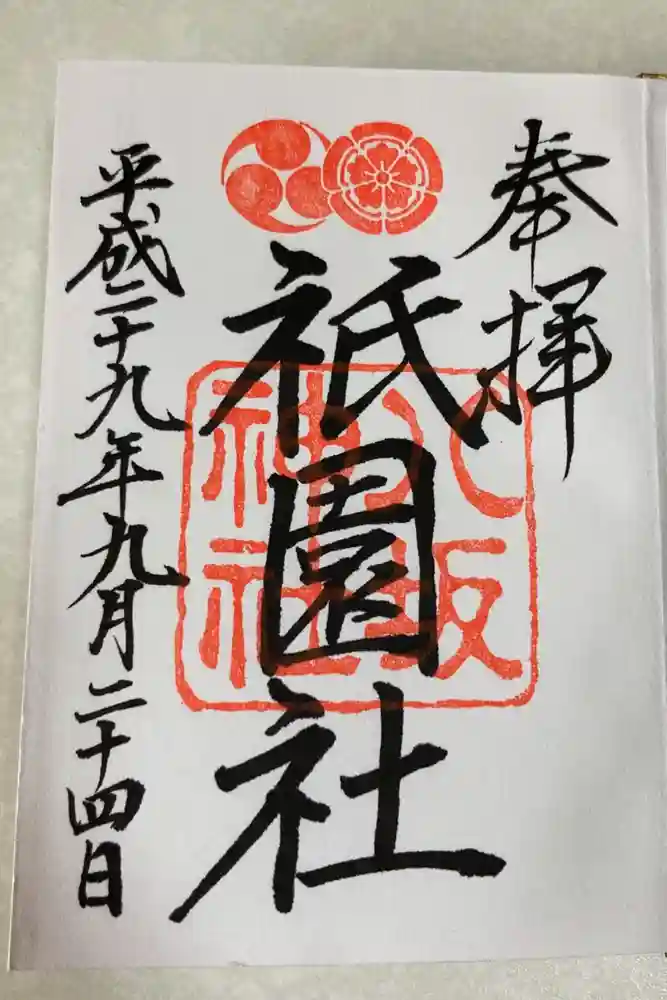 奉拝
祇園社
八坂
神社
平成二十九年九月二十四日